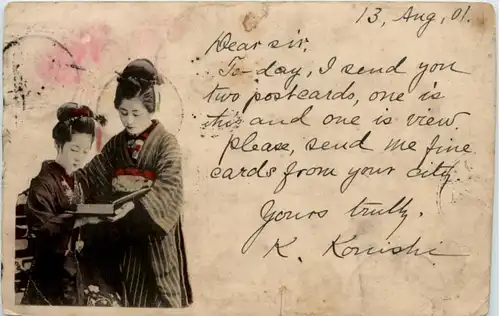 13, Aug, 01.
Dear sir,
To-day, I send you
two postcards, one is
this and one is view.
please, send me fine
cards from your city.
Yours truly.
K. Konishi